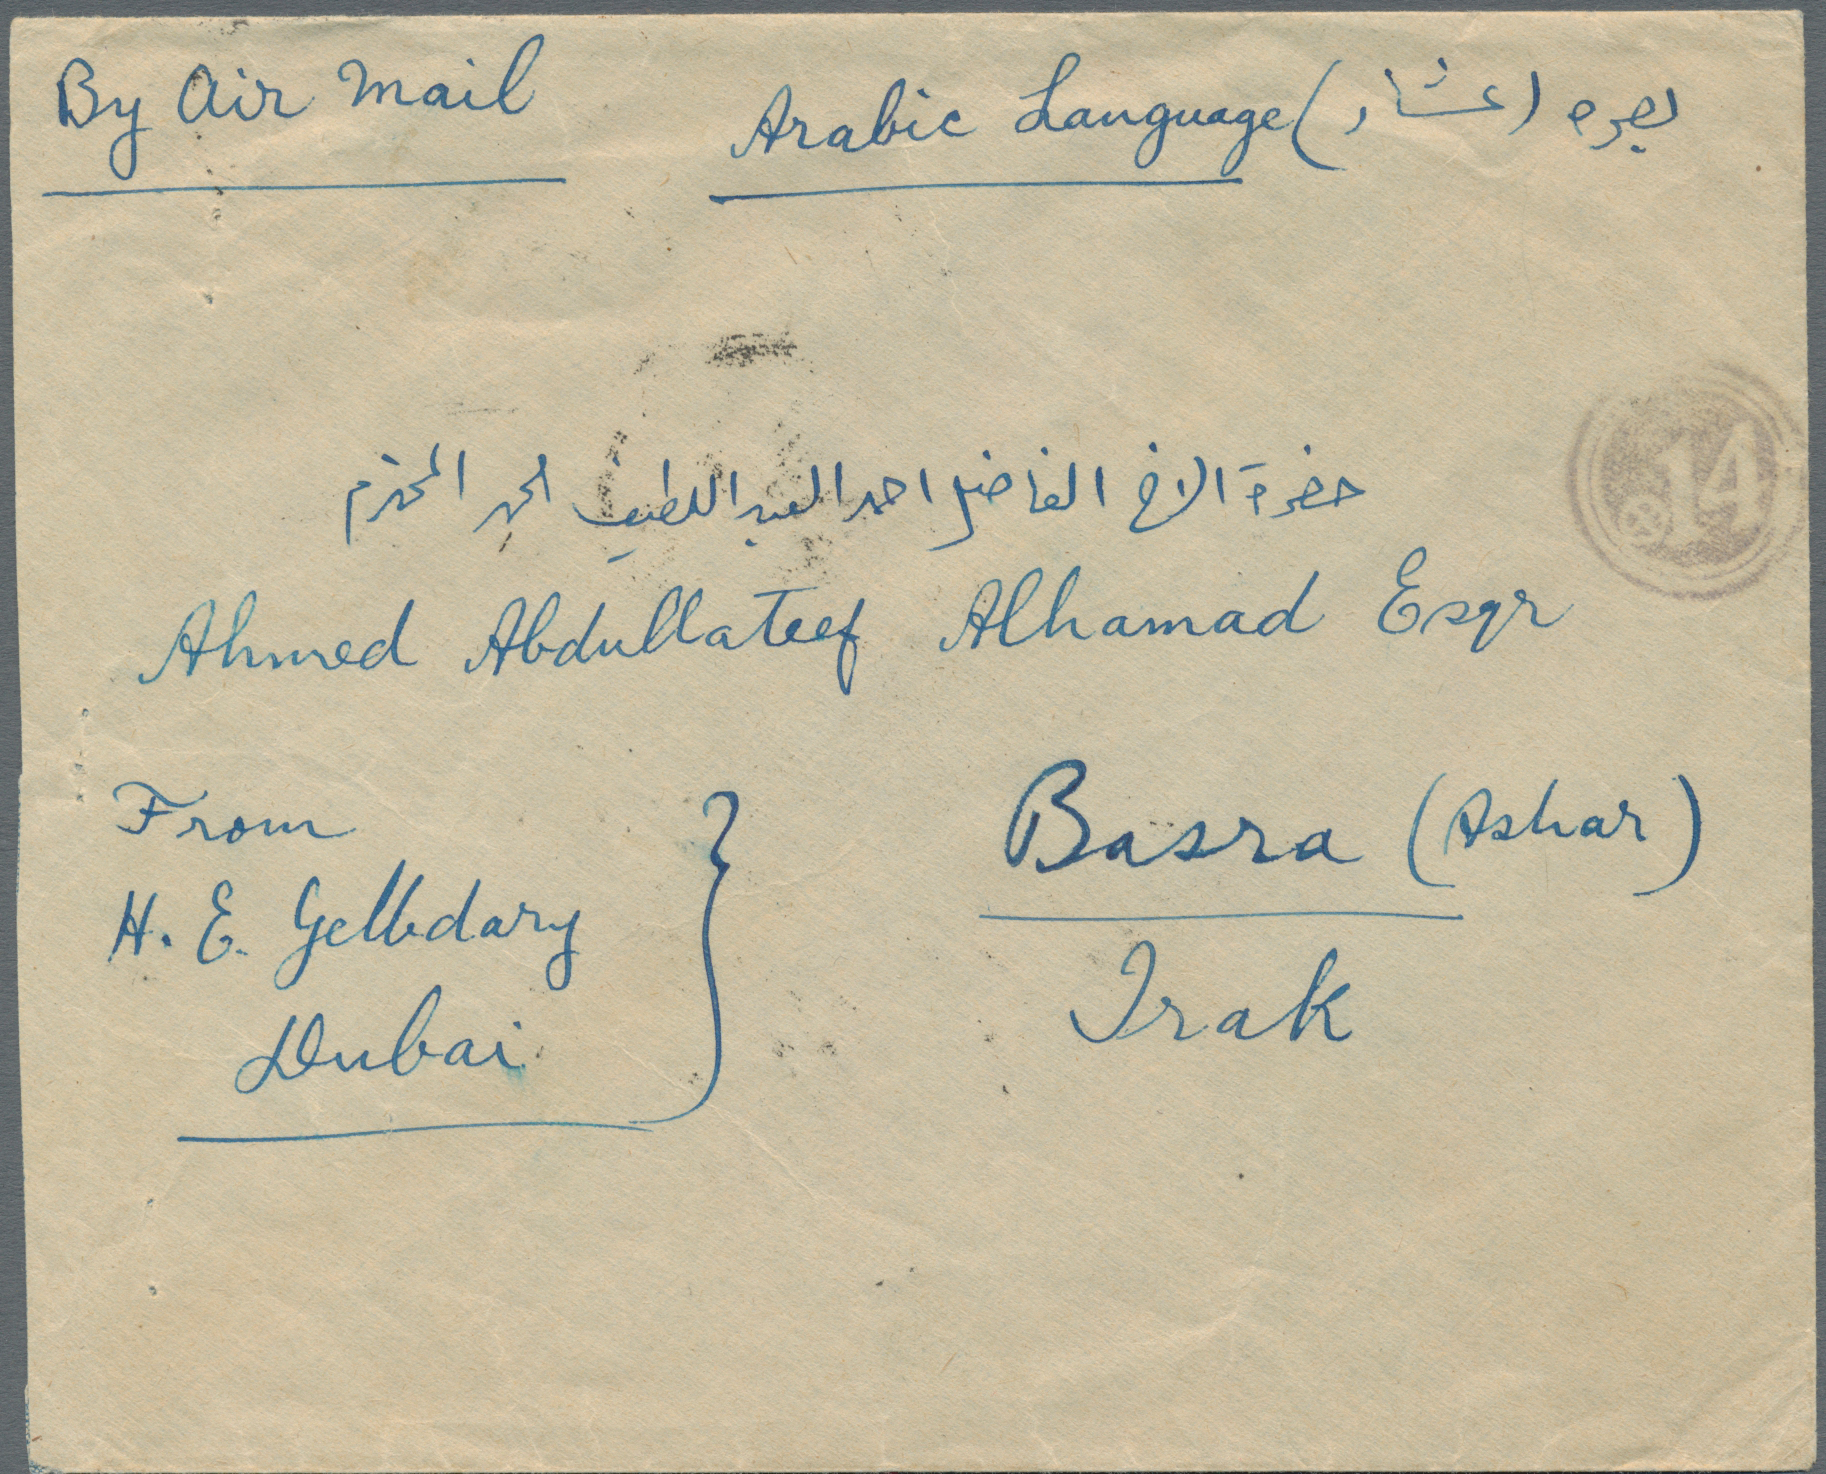 By Air Mail
Arabic Language (عشار) بصره
حضرة الاخ الفاضل احمد العبد اللطيف الحمد المحترم
Ahmed Abdullateef Alhamad Esqr
From
H. E. Gelbdary
Dubai
Basra (Ashar)
Irak
14